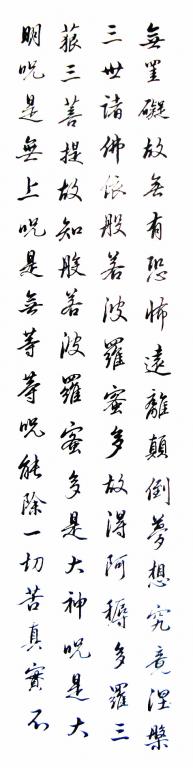 無罣礙故無有恐怖遠離顛倒夢想究竟涅槃
三世諸佛依般若波羅蜜多故得阿耨多羅三
藐三菩提故知般若波羅蜜多是大神呪是大
明呪是無上呪是無等等呪能除一切苦真實不